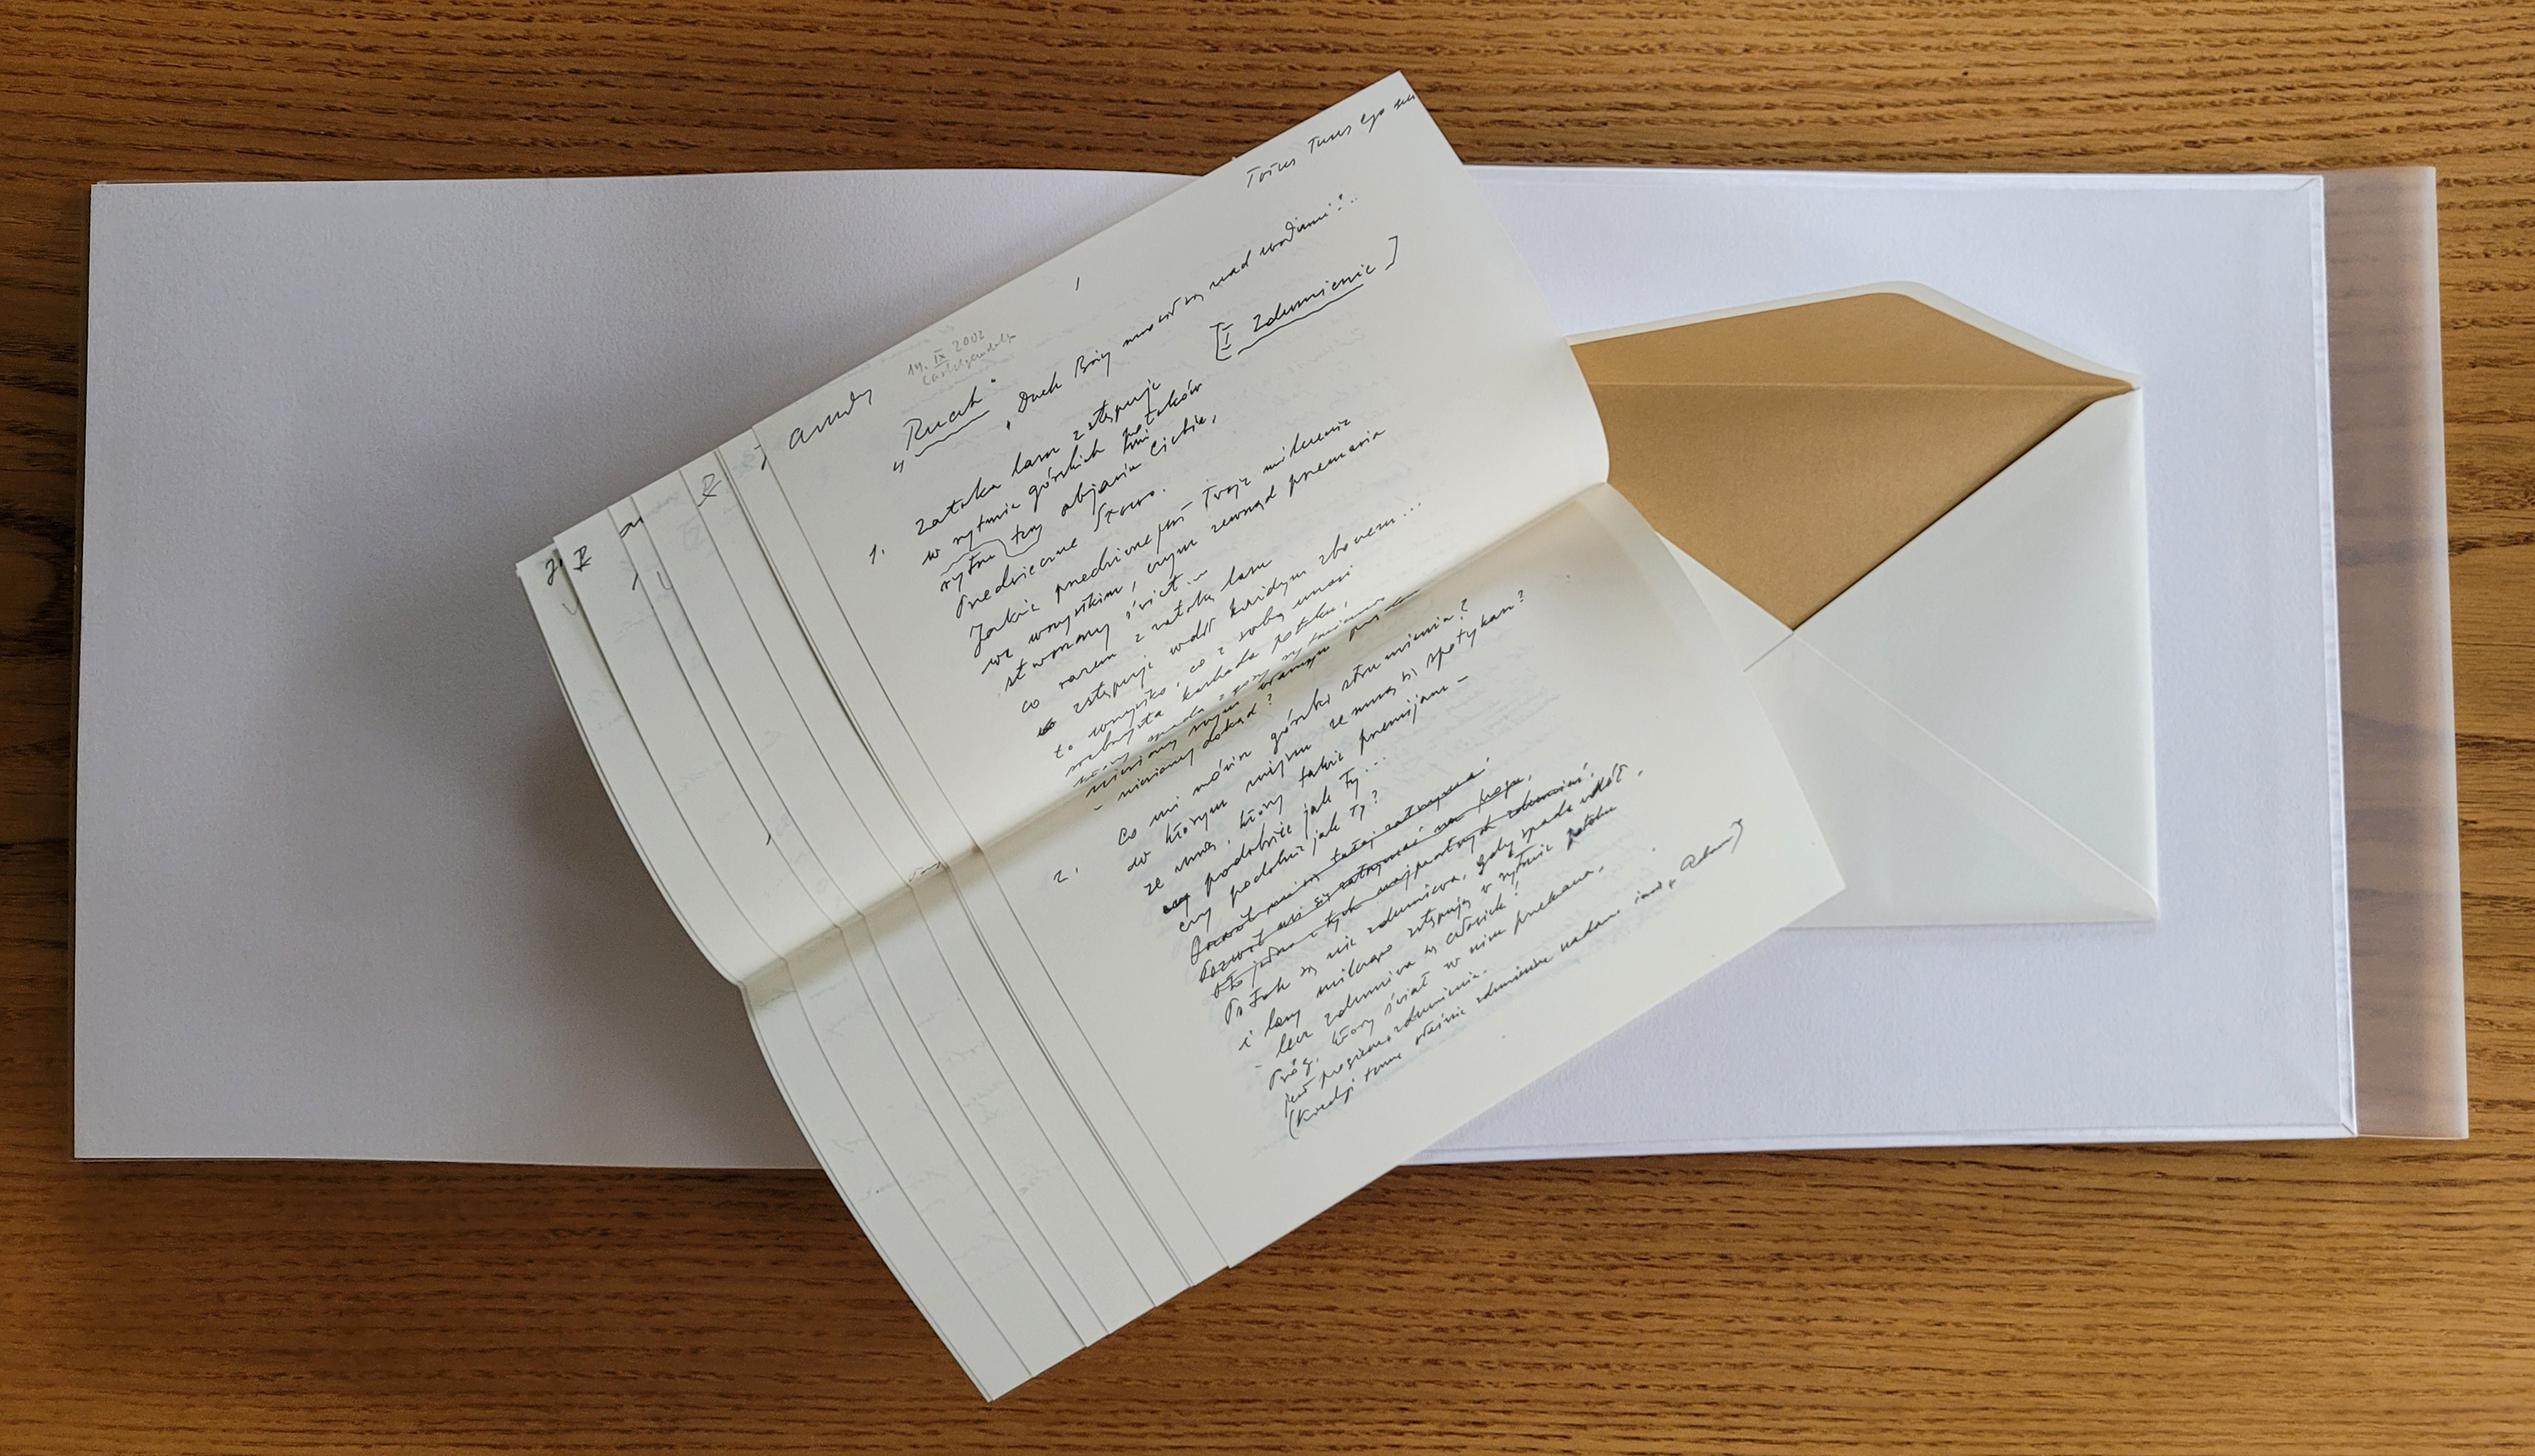 Totus Tuus ego su
1
14. IX 2002
Castelgandolfo
"Ruah"
"Duch Boży unosił się nad wodami"...
[I Zdumienie]
1. Zatoka lasu zstępuje
w rytmie górskich potoków
rytm ten objawia Ciebie,
Przedwieczne Słowo.
Jakże przedziwne jest Twoje milczenie
we wszystkim, czym zewsząd przemawia
stworzony świat...
co razem z zatoką lasu
zstępuje w dół każdym zboczem...
to wszystko, co z sobą unosi
srebrzysta kaskada potoku,
który spada z góry rytmicznie
niesiony swym prądem
- niesiony dokąd?
2. Co mi mówisz górski strumieniu?
w którym miejscu ze mną się spotykasz?
ze mną, który także przemijam -
podobnie jak ty...
czy podobnie jak ty?
Pozwól mi się tutaj zatrzymać
Pozwól mi się zatrzymać na progu,
oto jedno z tych najprostszych zdumień.
Potok się nie zdumiewa, gdy spada w dół
i lasy milcząco zstępują w rytmie potoku
- lecz zdumiewa się człowiek!
Próg, który świat w nim przekracza,
jest progiem zdumienia.
(Kiedyś temu właśnie zdumieniu nadano imię "Adam")